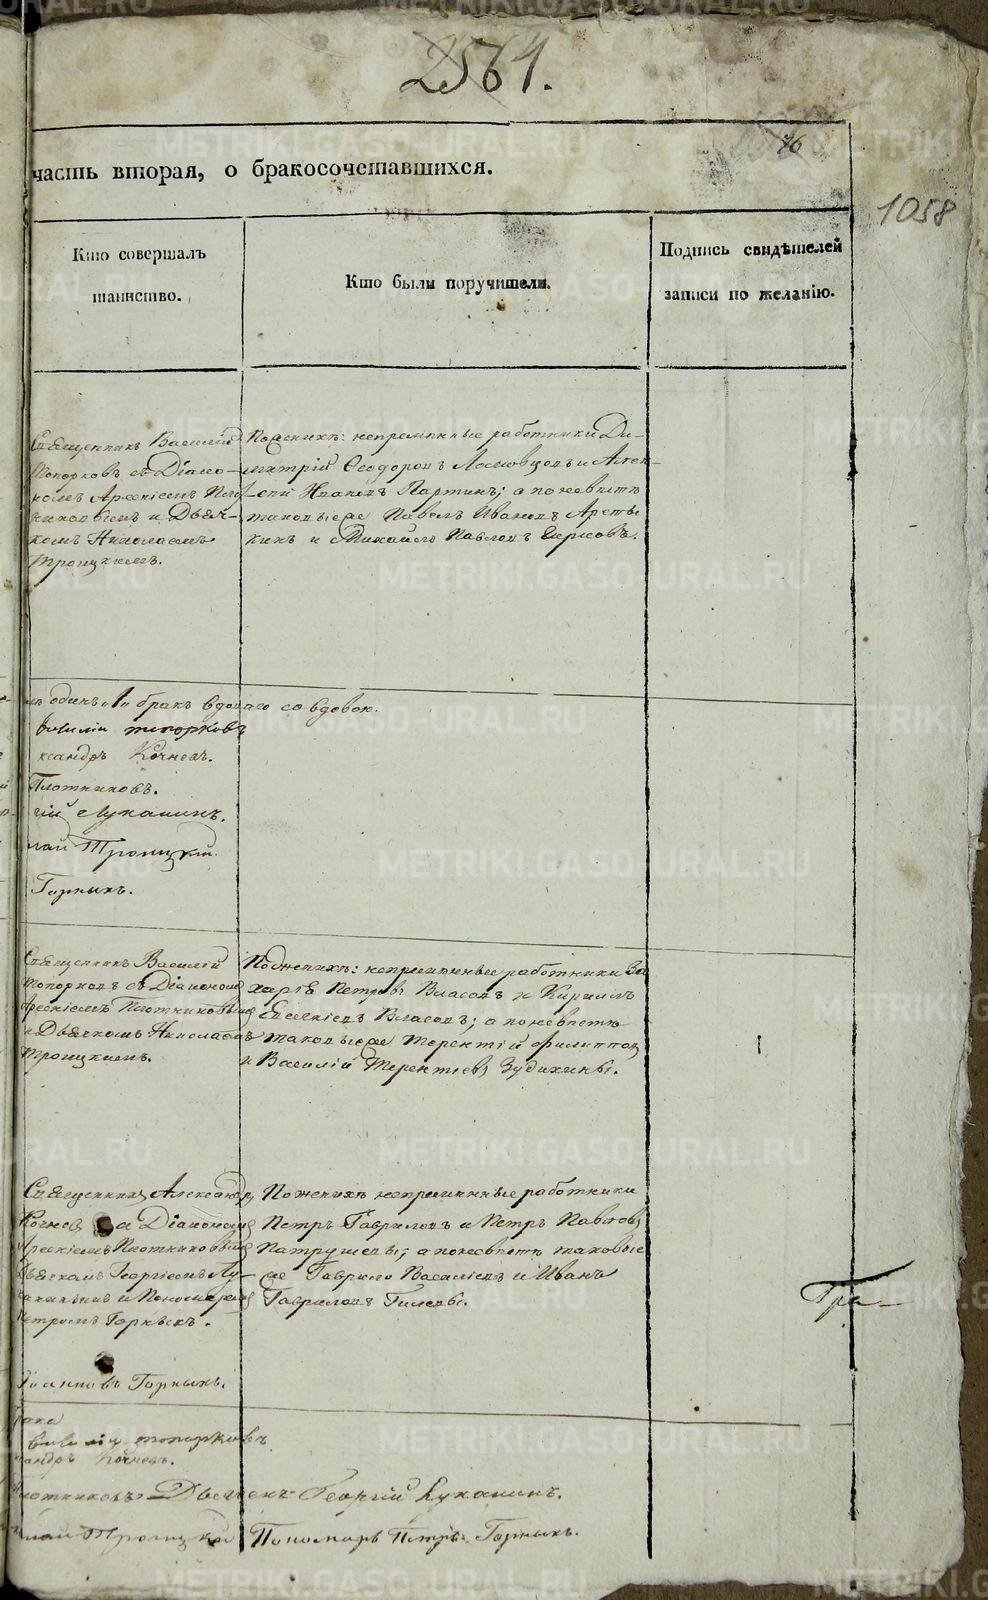 2564.
76
часть вторая, о бракосочетавшихся.
1058
Кто совершалъ
таинство.
Кто были поручители.
Подпись свидѣтелей
записи по желанію.
Священникъ Василій
Топорковъ съ Діако-
номъ Арсеніемъ Плот-
никовымъ и Дьяч-
комъ Николаемъ
Троицкимъ.
По женихѣ: непремѣнные работники Ди-
митрій Ѳеодоровъ и Алек-
сѣй Ивановъ Партинъ; а по невѣстѣ
таковые же Павелъ Ивановъ
и Михайло Павловъ
одинъ „1“ бракъ вдоваго со вдовою.
Василій Топорковъ
ксандръ Кочневъ.
Плотниковъ.
гій Лукашинъ.
лай Троицкій.
Горныхъ.
Священникъ Василій
Топорковъ съ Діакономъ
Арсеніемъ Плотниковымъ
и Дьячкомъ Николаемъ
Троицкимъ.
По женихѣ: непремѣнные работники За-
харъ Петровъ Власовъ и Кирилъ
Власовъ; а по невѣстѣ
таковые же Терентій Филиппов
и Василій Терентьевъ Зудихины.
Священникъ Александръ
Кочневъ съ Діакономъ
Арсеніемъ Плотниковымъ
Дьячкомъ Георгіемъ Лу-
кашинымъ и Пономаремъ
Петромъ Горныхъ.
По женихѣ непремѣнные работники
Петръ Гавриловъ и Петръ Павловъ
Патрушевы; а по невѣстѣ таковые
же Гаврило Васильевъ и Иванъ
Гавриловъ Гилевы.
Гра-
Горныхъ.
брака
Василій Топорковъ
сандръ Кочневъ.
лотниковъ Дьячекъ Георгій Лукашинъ.
лай Троицкій Пономарь Петръ Горныхъ.
METRIKI.GASO-URAL.RU